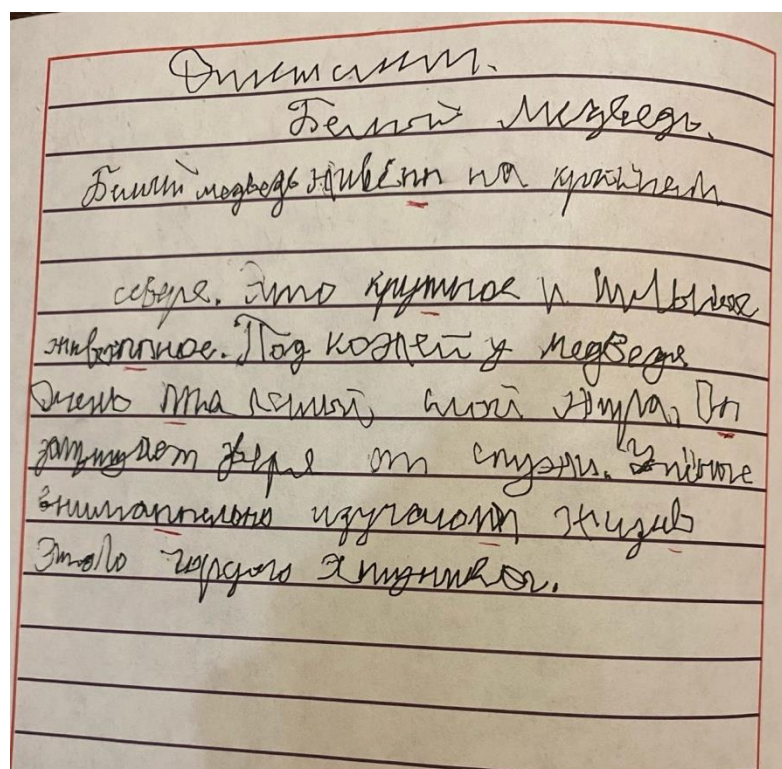 Диктант.
Белый медведь.
Белый медведь живёт на крайнем
севере. Это крупное и
животное. Под кожей у медведя
Очень толстый слой жира. Он
защищает зверя от стужи. Учёные
внимательно изучают жизнь
этого гордого хищника.